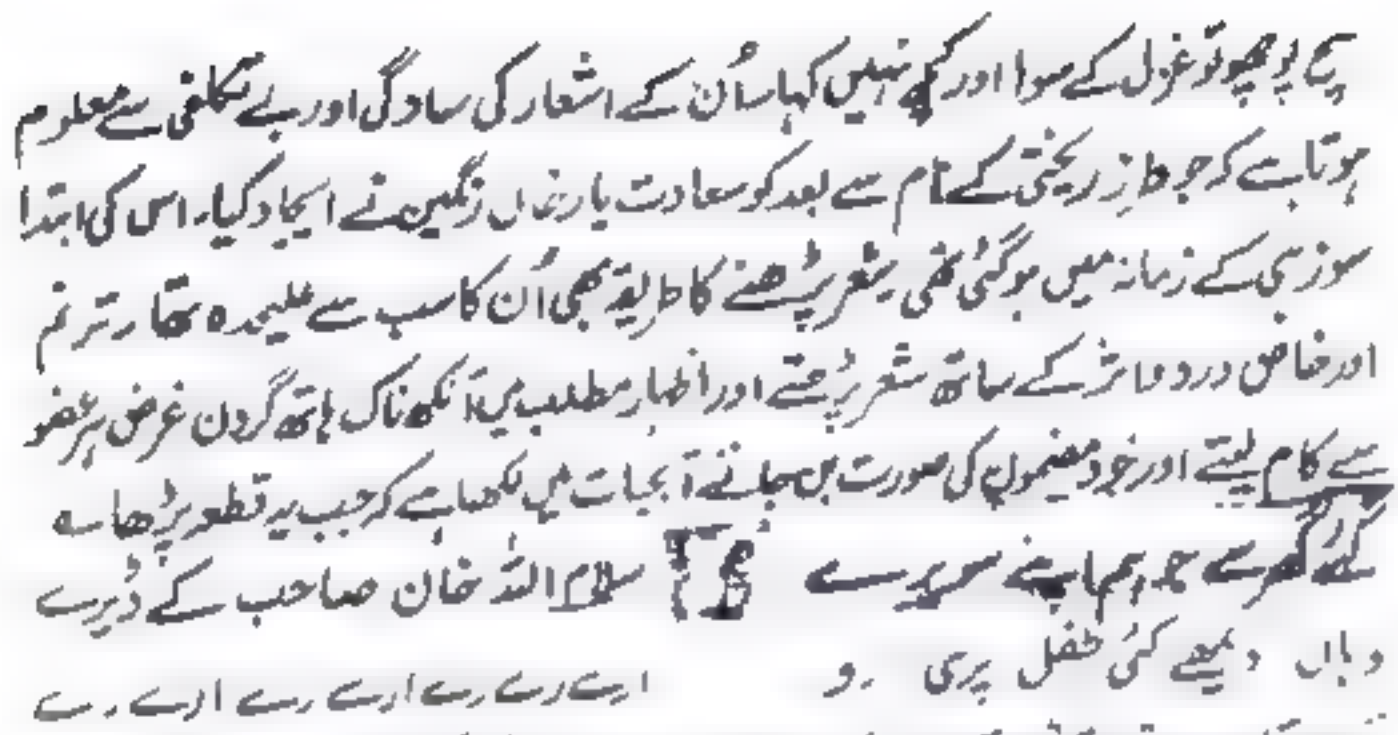 سچ پوچھو تو غزل کے سوا اور کچھ نہیں کہا۔ اُن کے اشعار کی سادگی اور بے تکلفی سے معلوم
ہوتا ہے کہ جو طرز ریختی کے نام سے بعد کو سعادت یار خاں رنگین نے ایجاد کیا۔ اس کی ابتدا
سوز ہی کے زمانہ میں ہوگئی تھی۔ شعر پڑھنے کا طریقہ بھی اُن کا سب سے علیحدہ تھا۔ ترنم
اور خاص درد و اثر کے ساتھ شعر پڑھتے اور اظہار مطلب میں آنکھ ناک ہاتھ گردن غرض ہر عضو
سے کام لیتے اور خود مضمون کی صورت بن جاتے آبحیات میں لکھا ہے کہ جب یہ قطعہ پڑھا ؎
گھر سے جو ہم اپنے سویرے سلام اللہ خان صاحب کے ڈیرے
وہاں دیکھے کئی طفل پری رو ارے رے رے ارے رے ارے رے